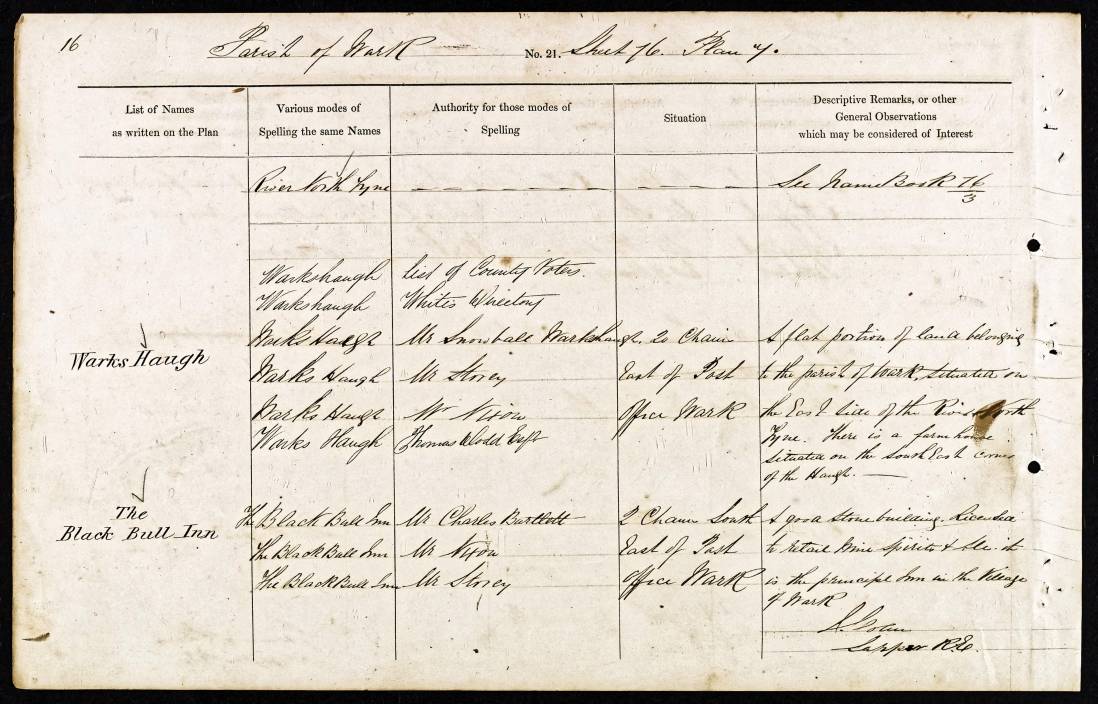 16
Parish of Wark No. 21. Sheet 76. Plan 7.
List of Names as written on the Plan
Various modes of Spelling the same Names
Authority for those modes of Spelling
Situation
Descriptive Remarks, or other General Observations which may be considered of Interest
River North Tyne — — — — — — — — — — — — — See Name Book 76/3
Warkshaugh List of County Voters.
Warkshaugh Whites Directory
Warks Haugh
Warks Haugh Mr Snowball Warkshaugh. 20 Chains A flat portion of land belonging
Warks Haugh Mr Storey East of Post to the parish of Wark, situated on
Warks Haugh Mr Nixon Office Wark the East side of the River North
Warks Haugh Thomas Dodd Esqr Tyne. There is a farmhouse
situated on the South East corner
of the Haugh. —
The
Black Bull Inn
The Black Bull Inn Mr Charles Bartlett 2 Chains South A good stone building. Licensed
The Black Bull Inn Mr Nixon East of Post to retail Wine Spirits & Ale. it
The Black Bull Inn Mr Storey Office Wark is the principle Inn in the Village
of Wark
Sapper R.E.